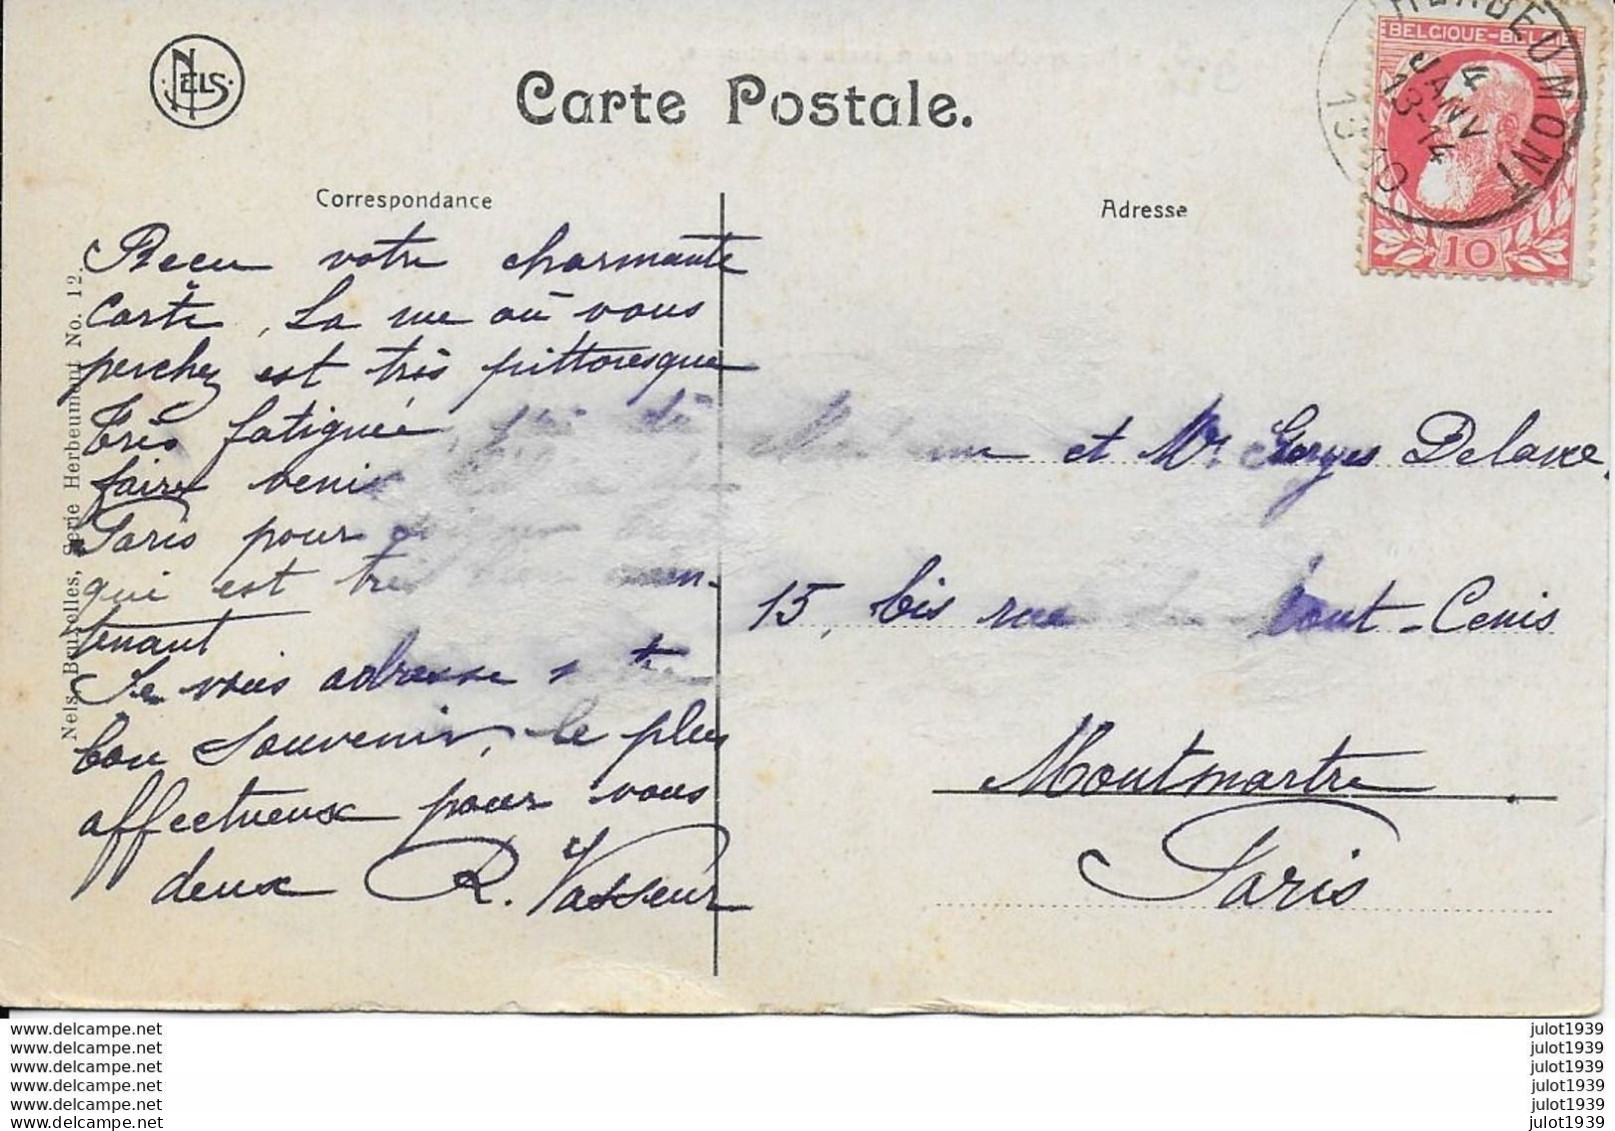 NELS
Carte Postale.
HERBEUMONT
4
JANV
13-14
19
BELGIQUE-BEL
10
Correspondance
Adresse
Nels, Bruxelles, Serie Herbeumont No. 12.
Recu votre charmante
Carte, La rue où vous
perchez est très pittoresque
Très fatiguée
faire venir
Paris pour
qui est très
tenant
Je vous adresse
bon souvenir, le plus
affectueux pour vous
deux R. Vasseur
et Mr Georges
15, bis rue Mont-Cenis
Montmartre
Paris
www.delcampe.net
www.delcampe.net
www.delcampe.net
www.delcampe.net
www.delcampe.net
www.delcampe.net
julot1939
julot1939
julot1939
julot1939
julot1939
julot1939